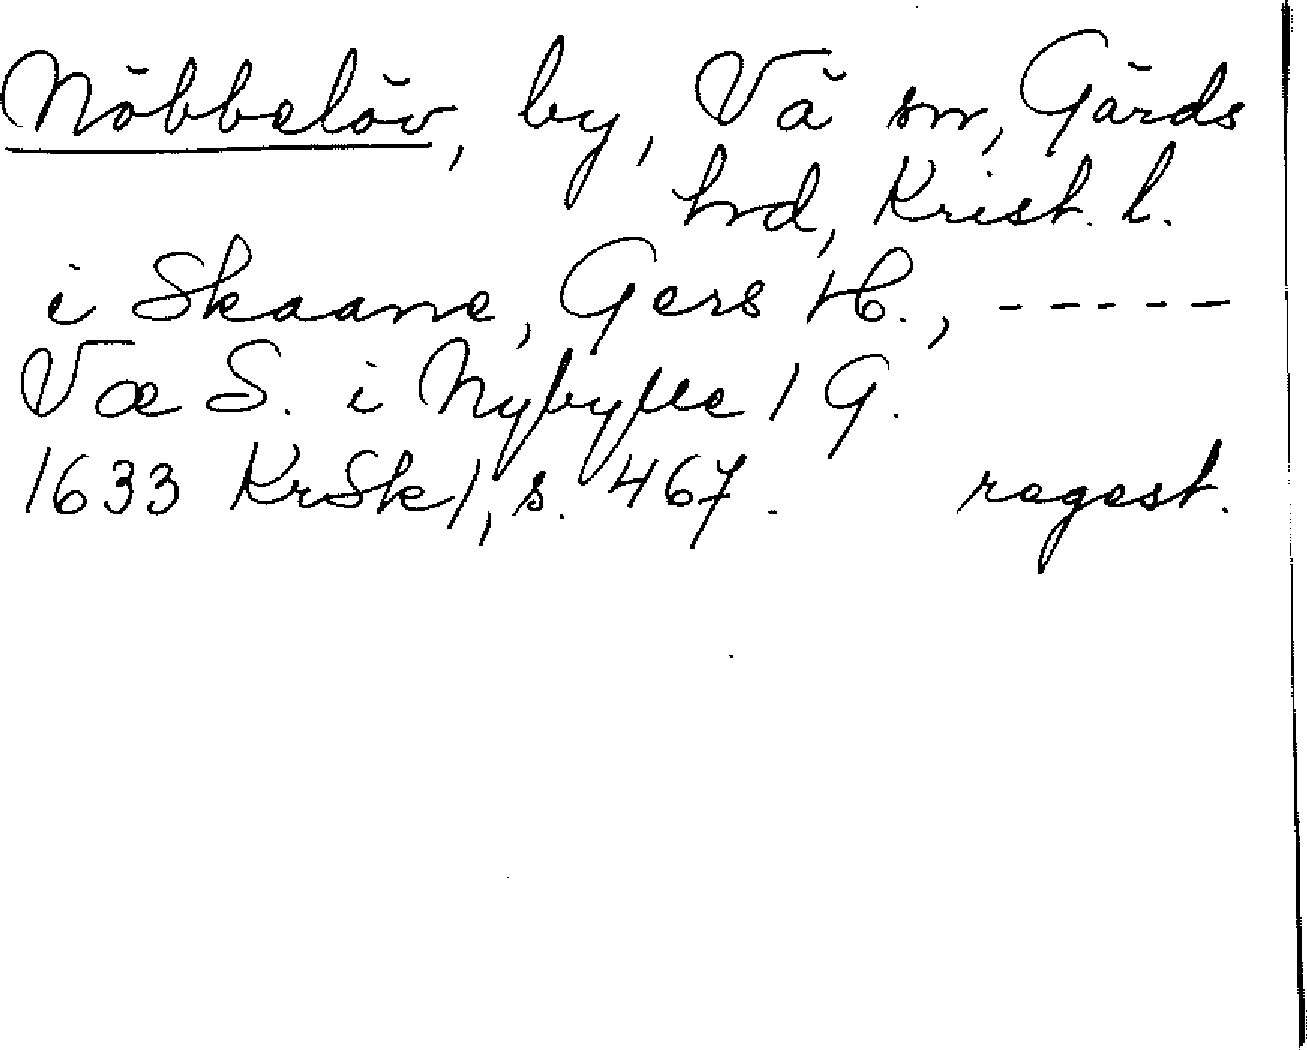 Nöbbelöv, by, Vä sn, Gärds
hrd, Krist. l.
i Skaane, Gers H., -----
Væ S. i Nybylle 1 G.
1633 KrSk 1, s. 467. regest.